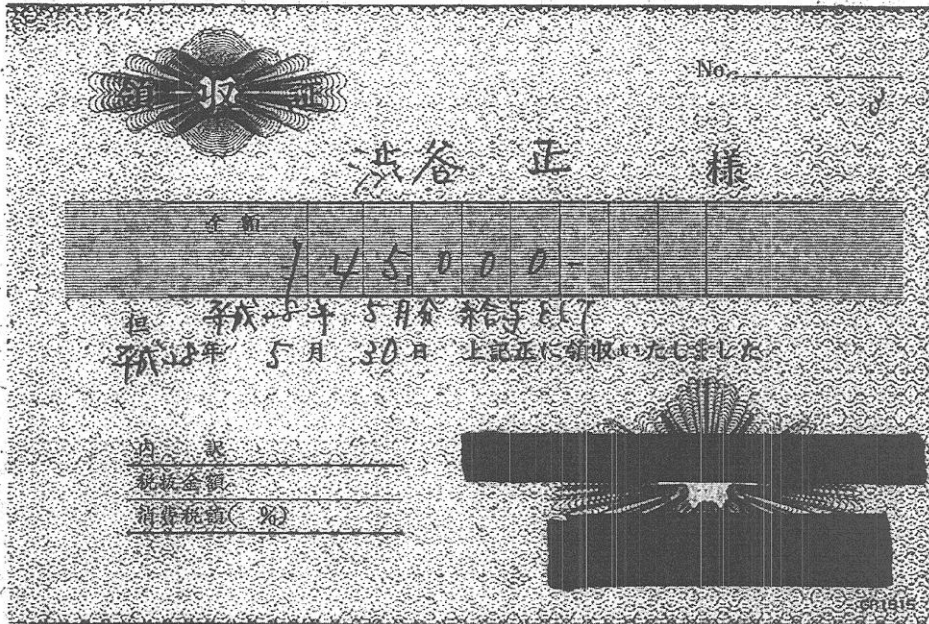 領収証
No.
8
渋谷 正 様
金額
145,000-
但 平成28年 5月分 給与として
平成28年 5月 30日 上記正に領収いたしました
内訳
税抜金額
消費税額( %)